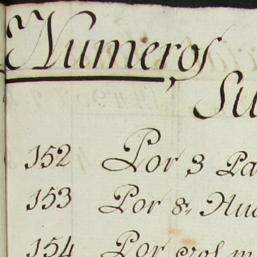 Numeros
Su
152 Por 3 Pa
153 Por 8
154 Por